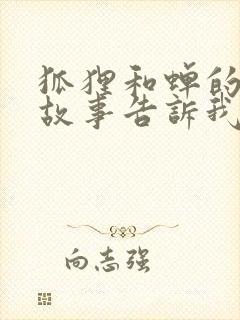 狐狸和蝉的
故事告訴我
向志强